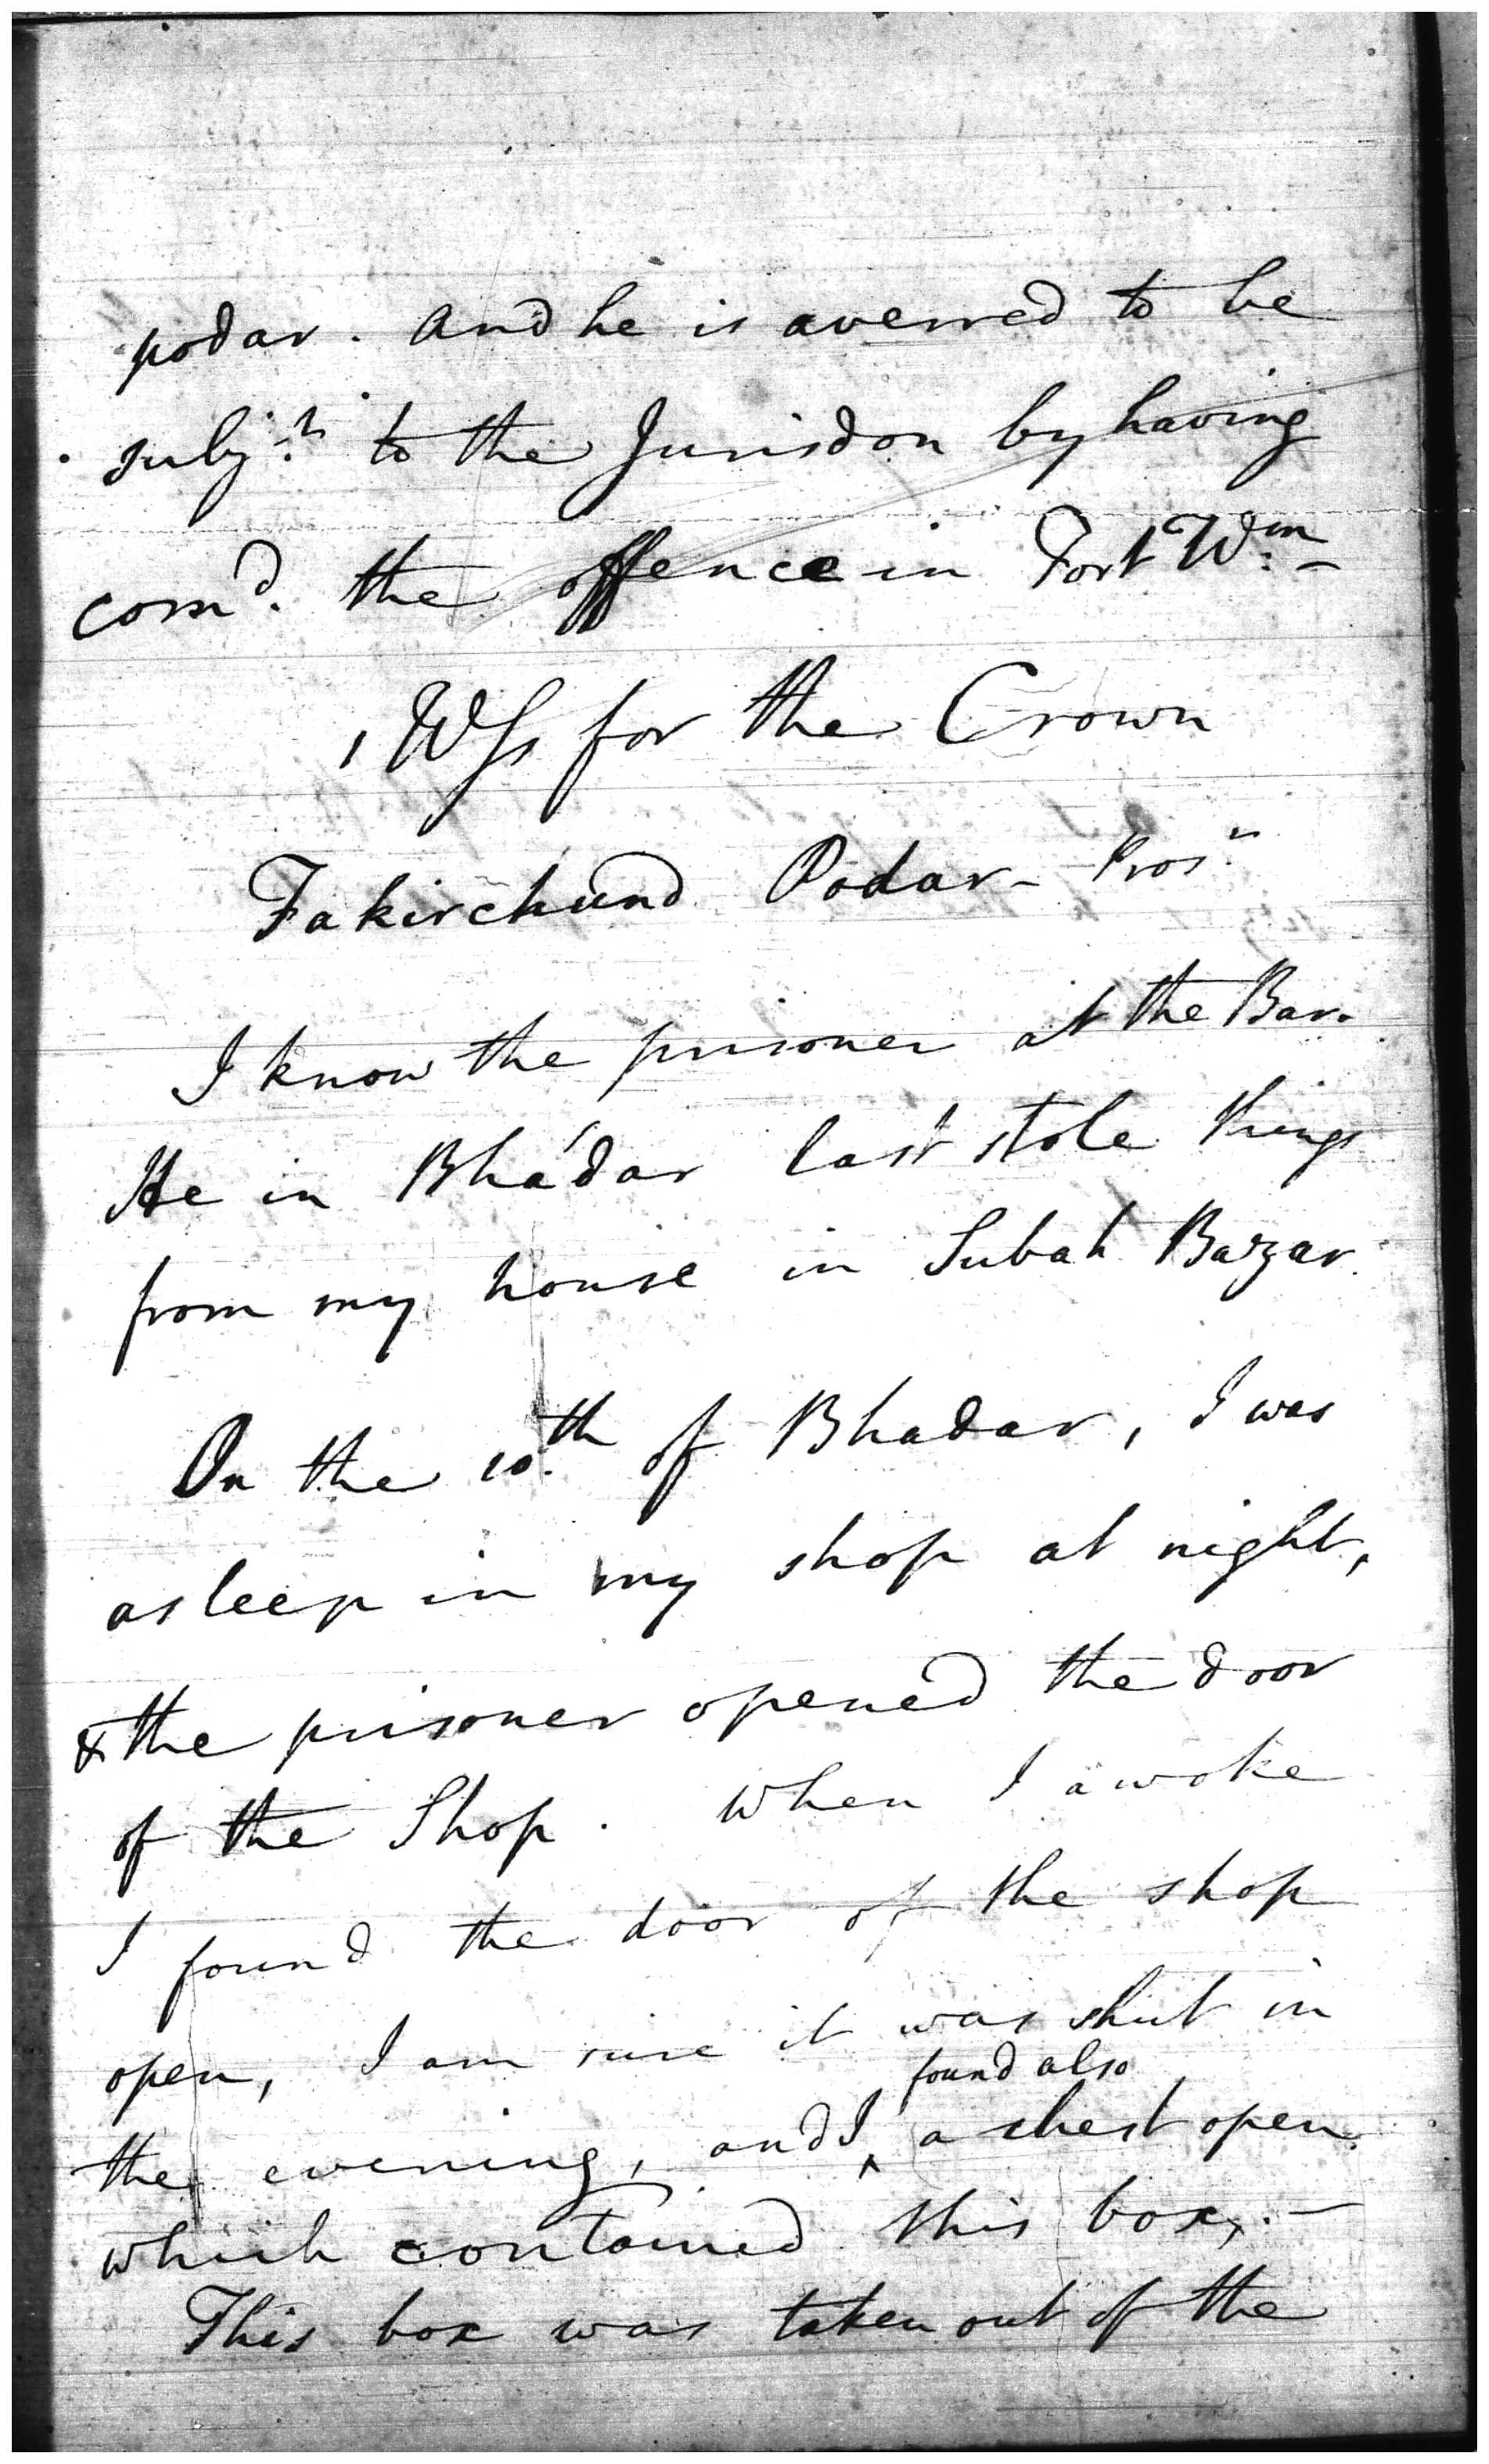 podar. And he is averred to be
subj.t to the Jurisdon by having
com.d the offence in Fort W.m -
1 Ws for the Crown
Fakirchund Podar - Pros.r
I know the prisoner at the Bar.
He in Bhádar last stole things
from my house in Subah Bazar.
On the 10.th of Bhadar, I was
asleep in my shop at night,
& the prisoner opened the door
of the Shop. When I awoke
I found the door of the shop
open, I am sure it was shut in
found also
the evening, and I ^ a chest open
which contained this box. -
This box was taken out of the